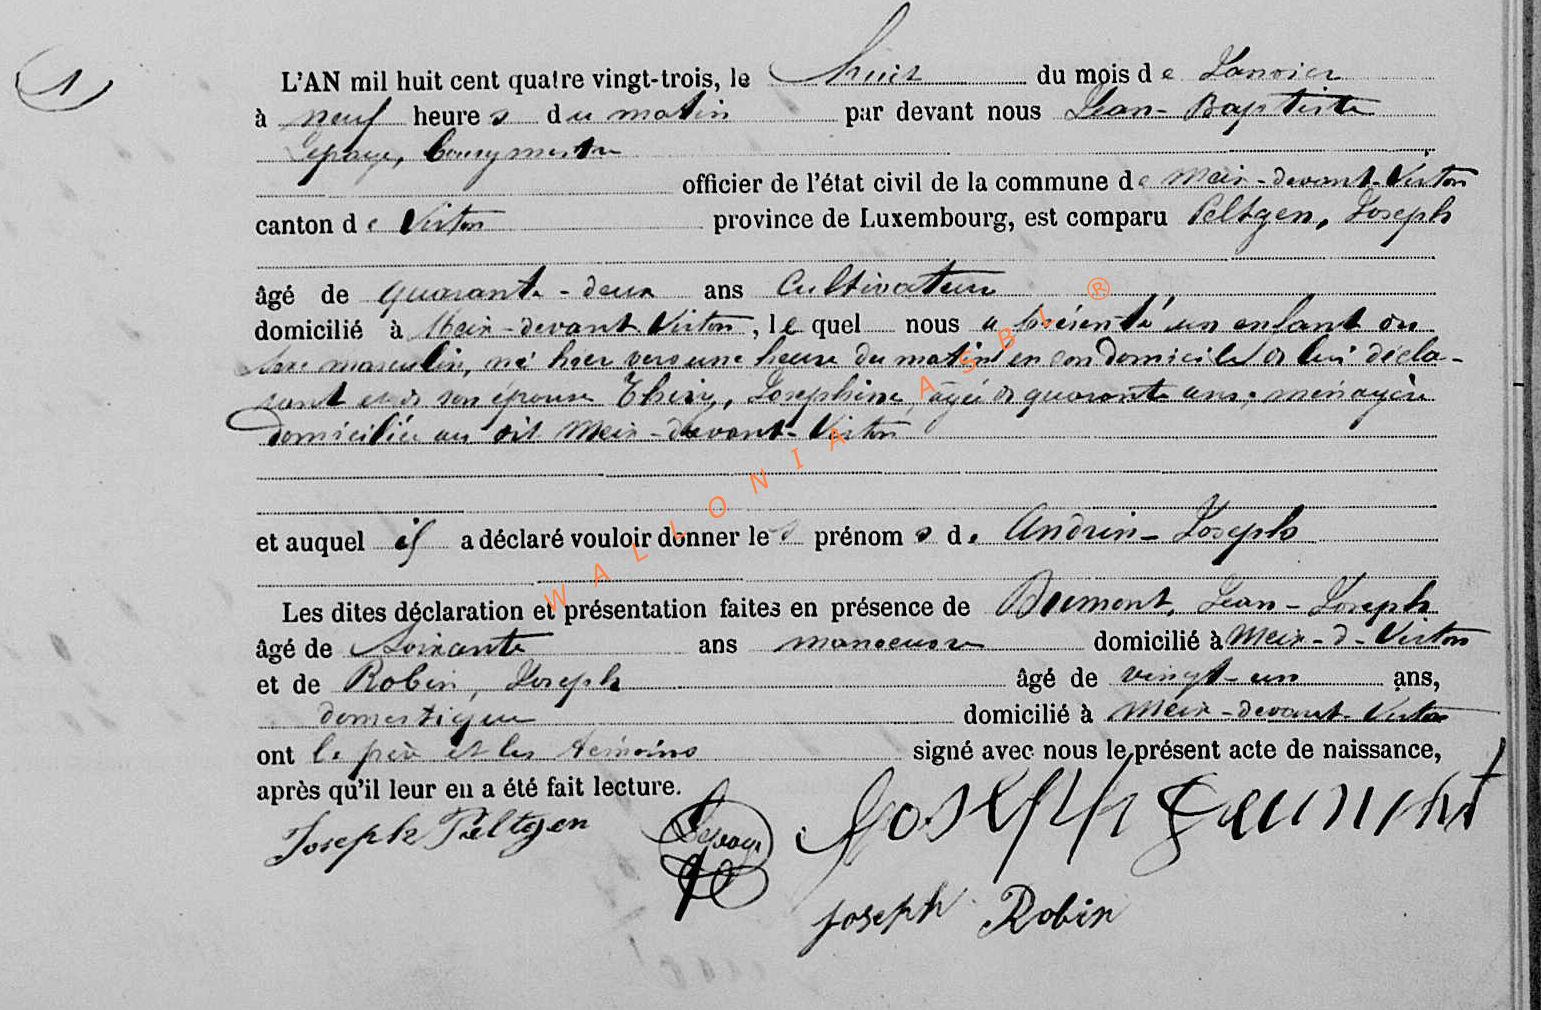 1
L'AN mil huit cent quatre vingt-trois, le huit du mois de Janvier
à neuf heures du matin par devant nous Jean-Baptiste
Lepage, bourgmestre
officier de l'état civil de la commune de Meix-devant-Virton
canton de Virton province de Luxembourg, est comparu Peltgen, Joseph
âgé de quarante-deux ans Cultivateur
domicilié à Meix-devant-Virton, lequel nous a présenté un enfant du
sexe masculin, né hier vers une heure du matin en son domicile de lui décla-
rant et de son épouse Thiry, Josephine, âgée de quarante ans, ménagère
domiciliée au dit Meix-devant-Virton
et auquel il a déclaré vouloir donner les prénoms de Andrien-Joseph
Les dites déclaration et présentation faites en présence de Jean-Joseph
âgé de Soixante ans manoeuvre domicilié à Meix-d-Virton
et de Robin, Joseph âgé de vingt-un ans,
domestique domicilié à Meix-devant-Virton
ont le père et les témoins signé avec nous le présent acte de naissance,
après qu'il leur en a été fait lecture.
Joseph Peltgen Lepage Joseph
Joseph Robin
WALLONIA ASBL ®